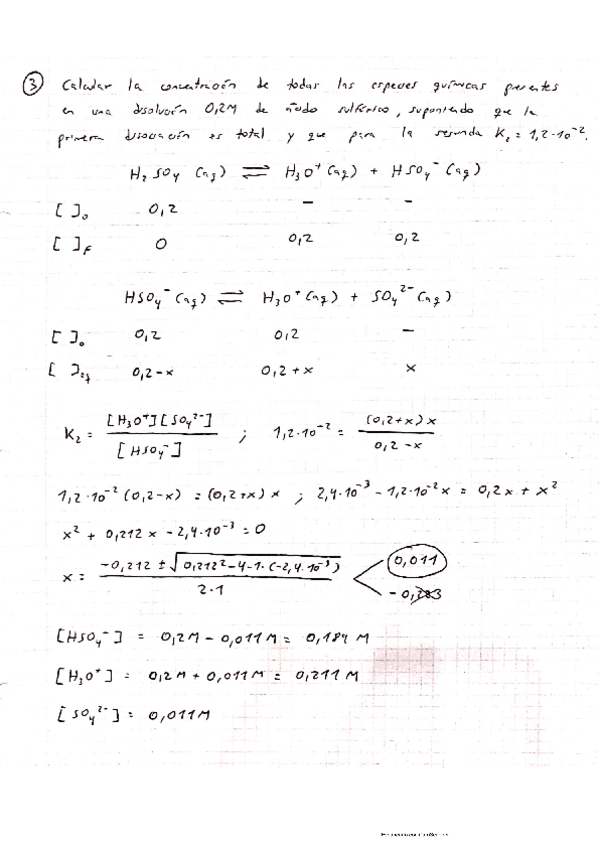 ③ Calcular la concentración de todas las especies químicas presentes
en una disolución 0,2M de ácido sulfúrico, suponiendo que la
primera disociación es total y que para la segunda K₂ = 1,2·10⁻².
H₂SO₄ (aq) ⇌ H₃O⁺(aq) + HSO₄⁻(aq)
[ ]₀ 0,2 – –
[ ]f 0 0,2 0,2
HSO₄⁻(aq) ⇌ H₃O⁺(aq) + SO₄²⁻(aq)
[ ]₀ 0,2 0,2 –
[ ]eq 0,2-x 0,2+x x
K₂ = [H₃O⁺][SO₄²⁻] / [HSO₄⁻] ; 1,2·10⁻² = (0,2+x)x / 0,2-x
1,2·10⁻²(0,2-x) = (0,2+x)x ; 2,4·10⁻³ - 1,2·10⁻²x = 0,2x + x²
x² + 0,212x - 2,4·10⁻³ = 0
x = -0,212 ± √0,212² - 4·1·(-2,4·10⁻³) / 2·1 < 0,011
[HSO₄⁻] = 0,2M - 0,011M = 0,189 M
[H₃O⁺] = 0,2M + 0,011M = 0,211M
[SO₄²⁻] = 0,011M